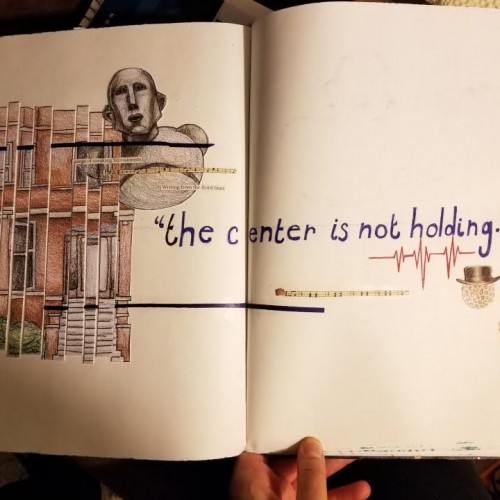 Writing from the Front Lines
"the center is not holding.